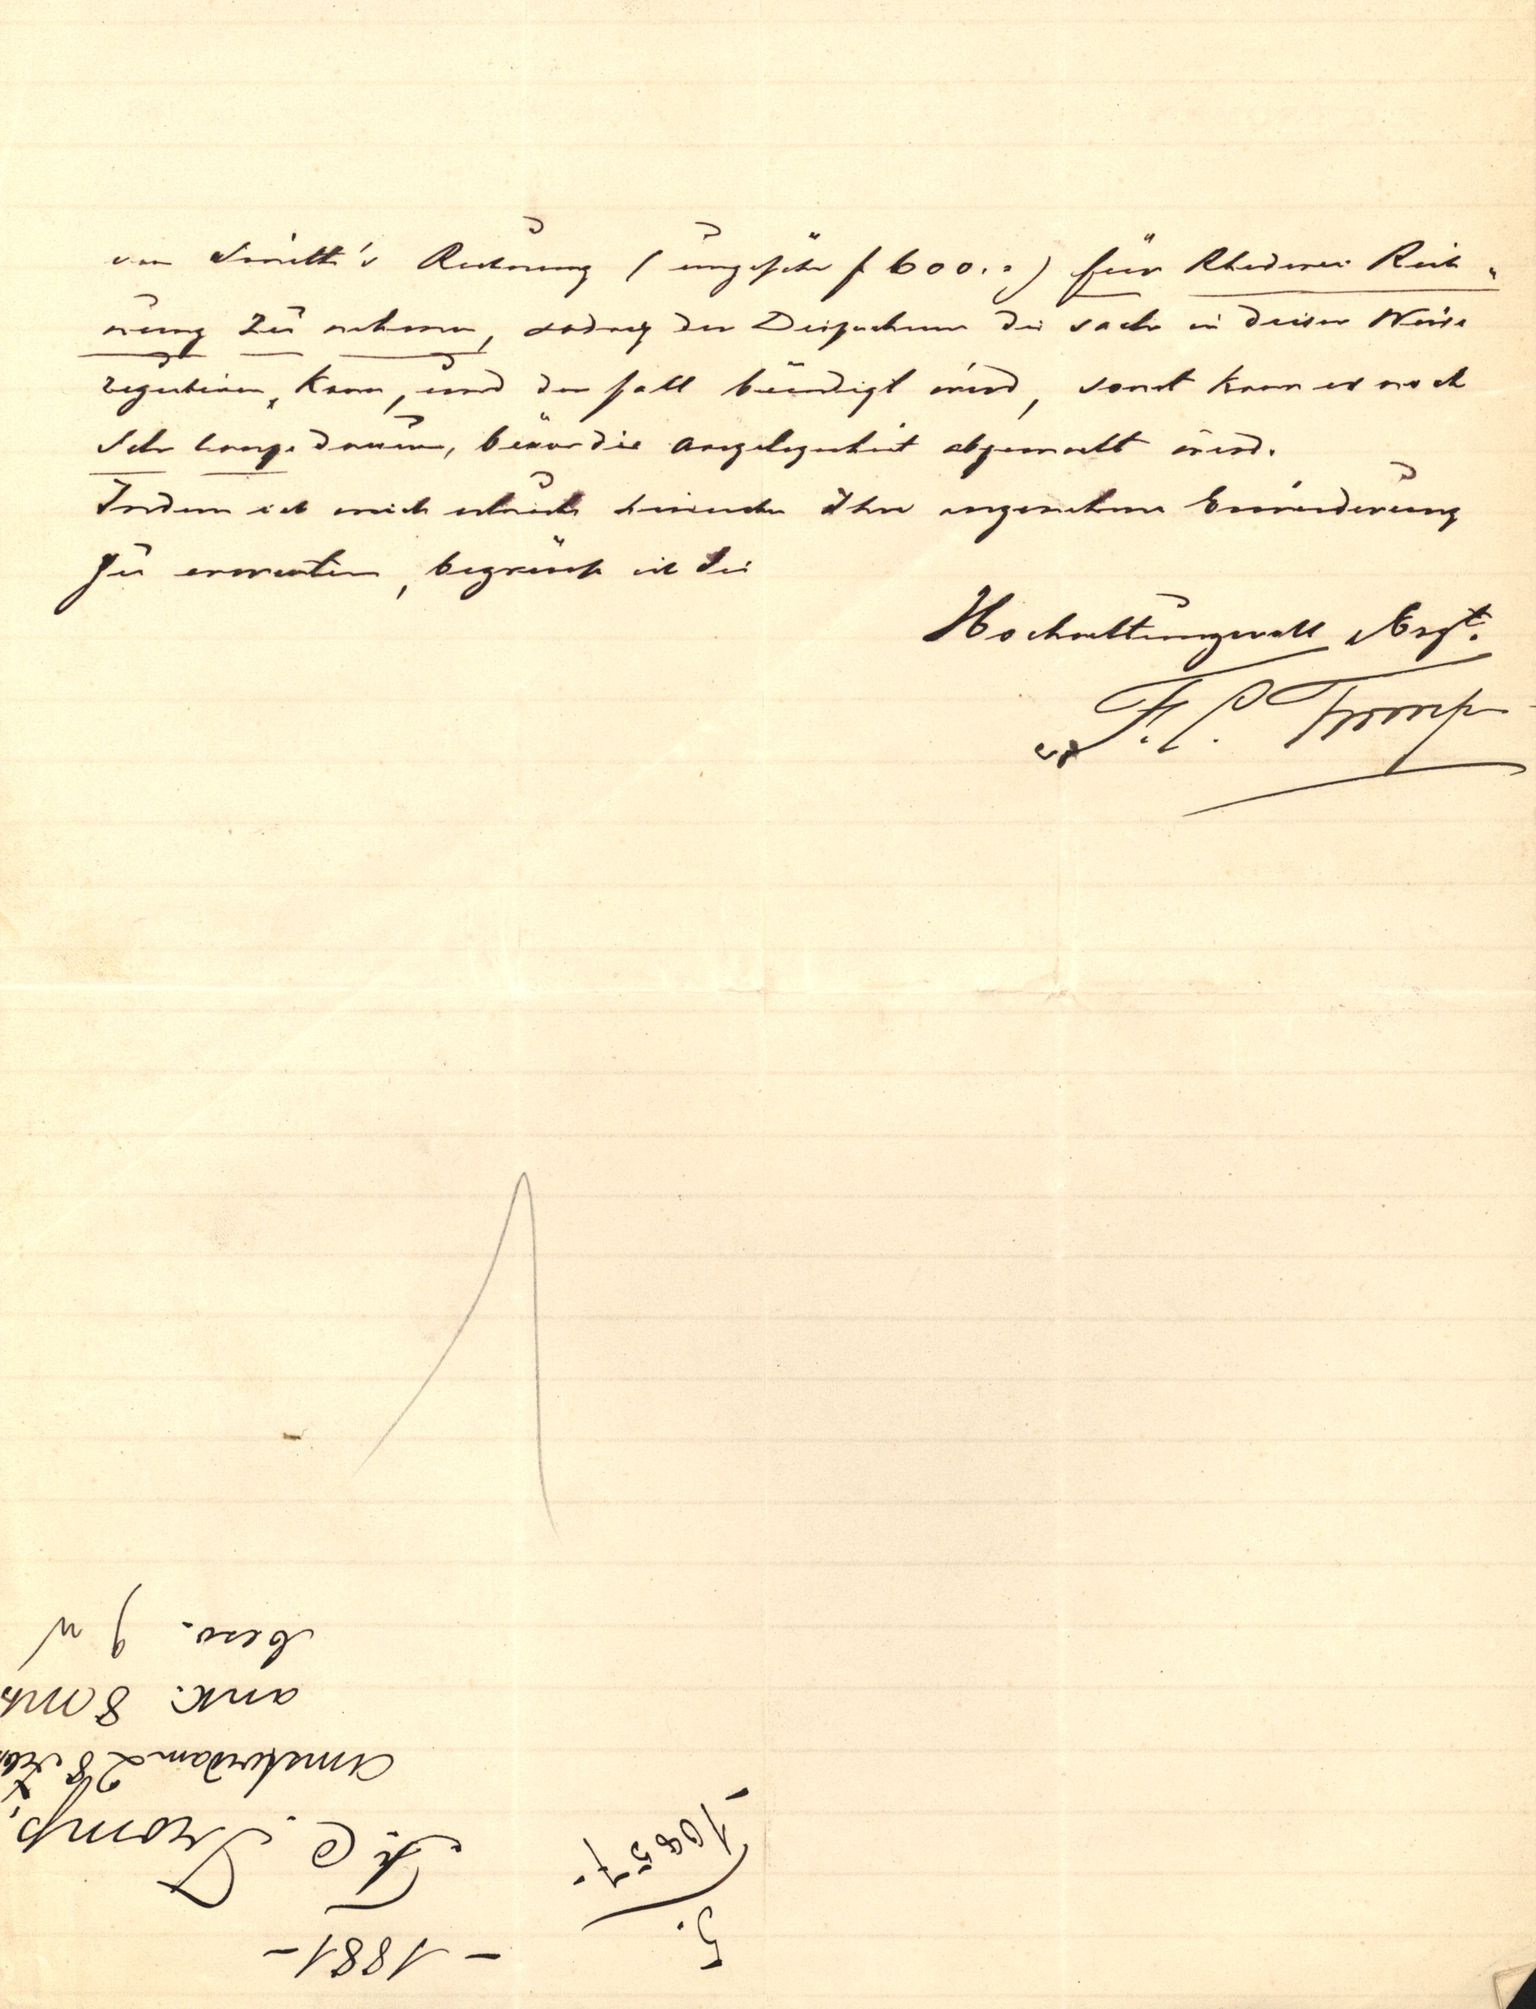 von Smith's Rechnung (ungefähr f 600.=) für Rhederei Rech-
nung zu nehmen, sodass der Dispacheur die Sache in dieser Weise
reguliren, kann, und der fall beendigt wird, sonst kann es noch
sehr lange dauern, bevor die Angelegenheit abgemacht wird.
Indem ich mich erlaube hierüber Ihre angenehme Erwiederung
zu erwarten, begrüsse ich Sie
Hochachtungsvoll Ergt.
F. C. Tromp
- 1881 -
F. C. Tromp,
Amsterdam 28 Febr
ank. 8 Mts
bew. 9 "
5.